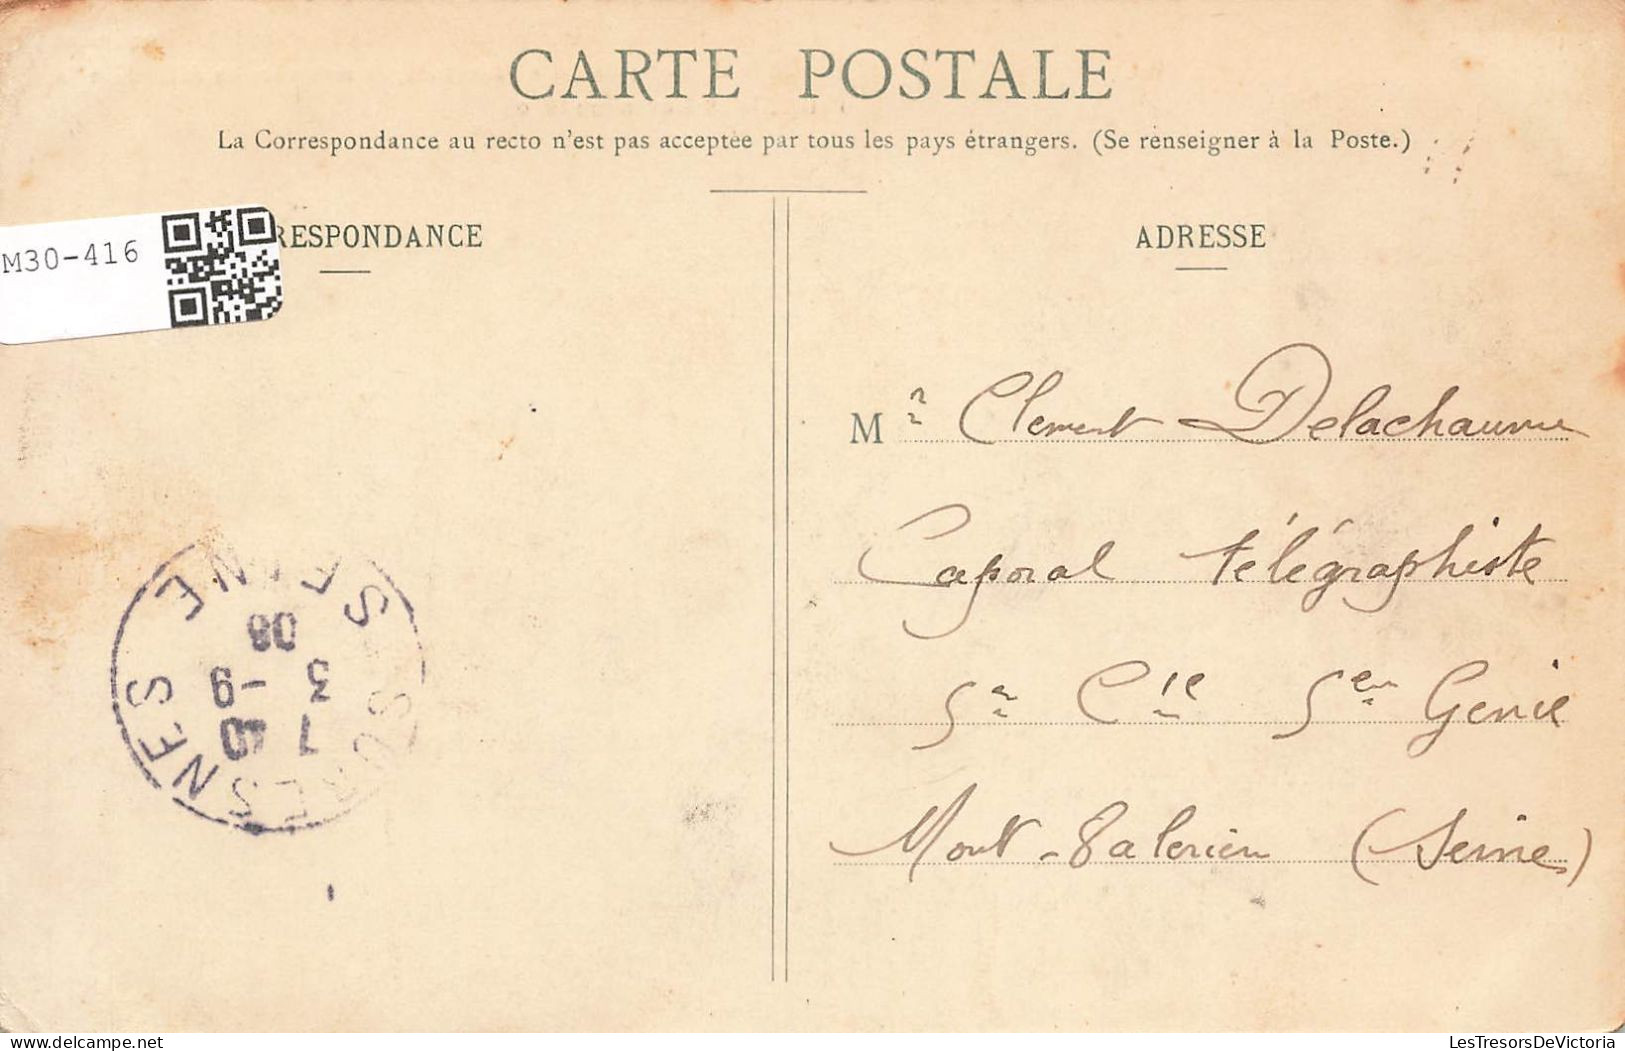 CARTE POSTALE
La Correspondance au recto n'est pas acceptée par tous les pays étrangers. (Se renseigner à la Poste.)
RESPONDANCE
ADRESSE
M30-416
Mr Clement Delachaume
Caporal télégraphiste
5e Cie 5en Genie
Mont-Valerien (Seine)
SURESNES SEINE
7 40
3 -9
08
LesTresorsDeVictoria
www.delcampe.net